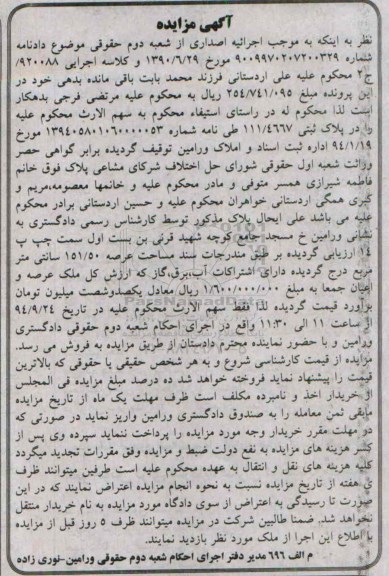 آگهی مزایده
نظر به اینکه به موجب اجرائیه اصداری از شعبه دوم حقوقی موضوع دادنامه
شماره ۹۰۰۹۹۷۰۲۰۷۲۰۰۳۲۹ مورخ ۱۳۹۰/۶/۲۹ و کلاسه اجرایی ۹۲۰۰۸۸/
ج۲ محکوم علیه علی اردستانی فرزند محمد بابت باقی مانده بدهی خود در
این پرونده مبلغ ۲۵۴/۷۴۱/۰۹۵ ریال به محکوم علیه مرتضی فرجی بدهکار
است لذا محکوم له در راستای استیفاء محکوم به سهم الارث محکوم علیه
را در پلاک ثبتی ۱۱۱/۴۶۶۷ طی نامه شماره ۱۳۹۴۰۵۸۰۱۰۶۰۰۰۰۵۳ مورخ
۹۴/۱/۱۹ اداره ثبت اسناد و املاک ورامین توقیف گردیده برابر گواهی حصر
وراثت شعبه اول حقوقی شورای حل اختلاف شرکای مشاعی پلاک فوق خانم
فاطمه شیرازی همسر متوفی و مادر محکوم علیه و خانمها معصومه،مریم و
کبری همگی اردستانی خواهران محکوم علیه و حسین اردستانی برادر محکوم
علیه می باشد علی ایحال پلاک مذکور توسط کارشناس رسمی دادگستری به
نشانی ورامین خ مسجد جامع کوچه شهید قرنی بن بست اول سمت چپ پ
۱۴ ارزیابی گردیده بر طبق مندرجات سند مساحت عرصه ۱۵۱/۵۰ سانتی متر
مربع درج گردیده دارای اشتراکات آب،برق،گاز که ارزش کل ملک عرصه و
اعیان جمعا به مبلغ ۱/۶۰۰/۰۰۰/۰۰۰ ریال معادل یکصدوشصت میلیون تومان
برآورد قیمت گردید لذا فقط سهم الارث محکوم علیه در تاریخ ۹۴/۹/۲۴
از ساعت ۱۱ الی ۱۱:۳۰ واقع در اجرای احکام شعبه دوم حقوقی دادگستری
ورامین و با حضور نماینده محترم دادستان از طریق مزایده به فروش می رسد.
مزایده از قیمت کارشناسی شروع و به هر شخص حقیقی یا حقوقی که بالاترین
قیمت را پیشنهاد نماید فروخته خواهد شد ده درصد مبلغ مزایده فی المجلس
از خریدار اخذ و نامبرده مکلف است ظرف مهلت یک ماه از تاریخ مزایده
مابقی ثمن معامله را به صندوق دادگستری ورامین واریز نماید در صورتی که
در مهلت مقرر خریدار وجه مورد مزایده را پرداخت ننماید سپرده وی پس از
کسر هزینه های مزایده به نفع دولت ضبط و مزایده وفق مقررات تجدید میگردد
کلیه هزینه های نقل و انتقال به عهده محکوم علیه است طرفین میتوانند ظرف
ی هفته از تاریخ مزایده نسبت به نحوه انجام مزایده اعتراض نمایند که در این
صورت تا رسیدگی به اعتراض از سوی دادگاه مورد مزایده به نام خریدار منتقل
نخواهد شد. ضمنا طالبین شرکت در مزایده میتوانند ظرف ۵ روز قبل از مزایده
با اطلاع این اجرا از ملک مورد نظر بازدید نمایند.
م الف ۶۹۶ مدیر دفتر اجرای احکام شعبه دوم حقوقی ورامین-نوری زاده